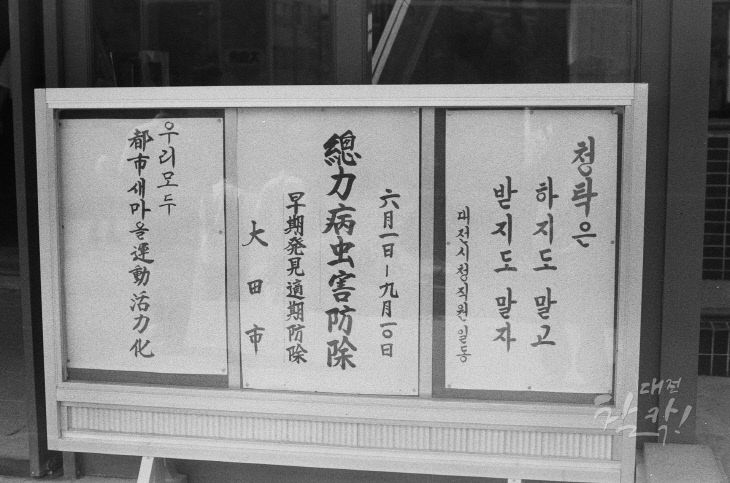 청탁은
하지도 말고
받지도 말자
대전시청직원 일동
六月一日–九月一〇日
總力病虫害防除
早期発見適期防除
大田市
우리모두
都市새마을運動活力化
대전
찰칵!